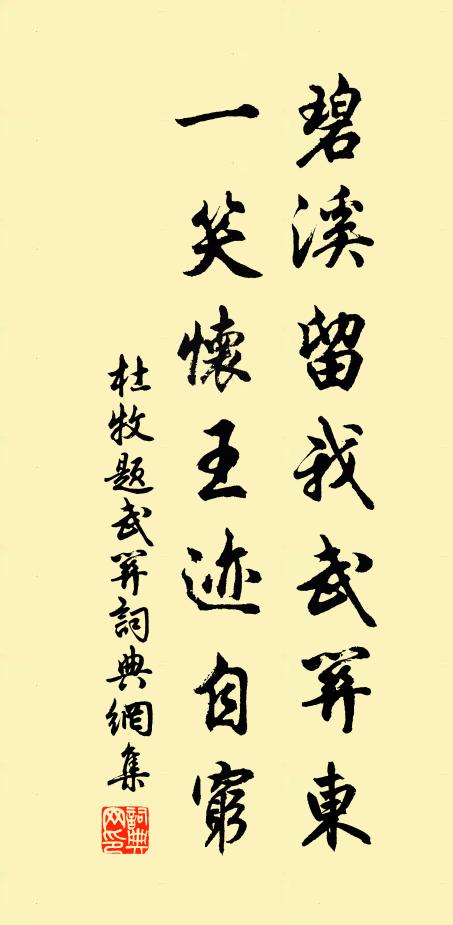 碧溪留我武關東
一笑懷王迹自窮
杜牧題武關詞典網集
詞典網印